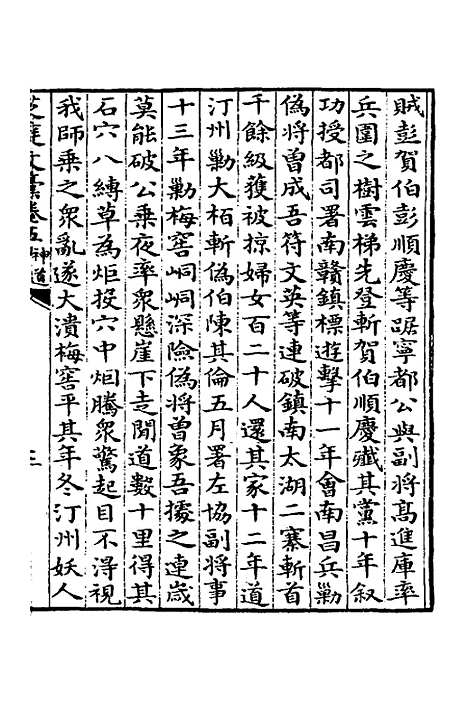 賊彭賀伯彭順慶等踞寧都公與副將高進庫率
兵圍之樹雲梯先登斬賀伯順慶殲其黨十年叙
功授都司署南贛鎮標遊擊十一年會南昌兵勦
偽將曽成吾符文英等連破鎮南太湖二寨斬首
千餘級獲被掠婦女百二十人還其家十二年道
汀州勦大栢斬偽伯陳其倫五月署左協副將事
十三年勦梅窖峒峒深險偽將曽象吾據之連歲
莫能破公乗夜率衆懸崖下走閒道數十里得其
石穴八縛草為炬投穴中烟騰衆驚起目不得視
我師乗之衆亂遂大潰梅窖平其年冬汀州妖人
芝庭文稾卷五 神道 三